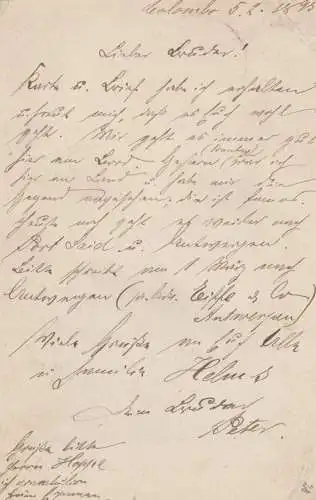 Colombo 5.2.1895
Lieber Bruder!
Karte u. Brief habe ich erhalten
u. freut mich, daß es Euch wohl
geht. Mir geht es immer gut
hier am Bord. Gestern (Sonntag) war ich
hier an Land u. habe mir die
Gegend angesehen, die ist famos.
Heute noch geht es weiter nach
Port Said u. Antwerpen.
Bitte schreibt nach
Antwerpen (Eiffe & Co
Antwerpen)
Viele Grüße an Euch Alle
u. Familie Helms
Dein Bruder
Peter.
Grüße bitte
Herrn
ich